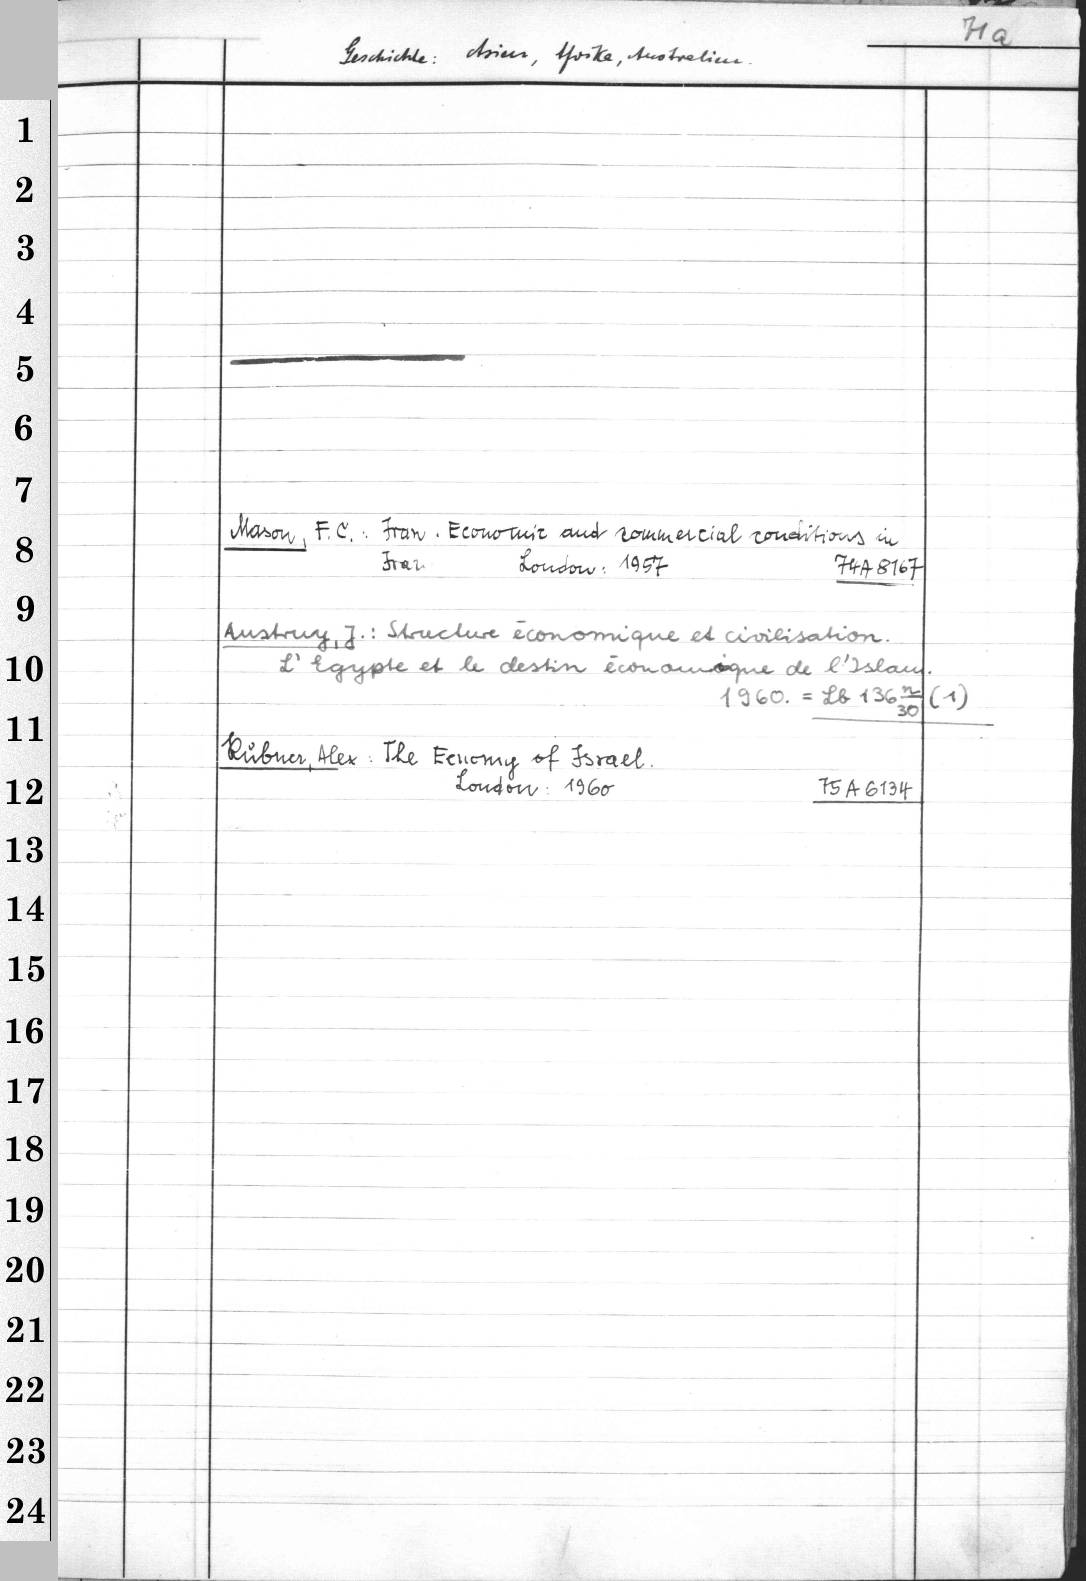 71a
Geschichte: Asien, Afrika, Australien.
1
2
3
4
5
6
7
Mason, F.C.: Iran. Economic and commercial conditions in
8
Iran London: 1957 74A8167
9
Austruy, J.: Structure économique et civilisation.
10
L'Egypte et le destin économique de l'Islam.
1960. = Lb 136 n/30 (1)
11
Rubner, Alex: The Ecnomy of Israel.
12
London: 1960 75A6134
13
14
15
16
17
18
19
20
21
22
23
24